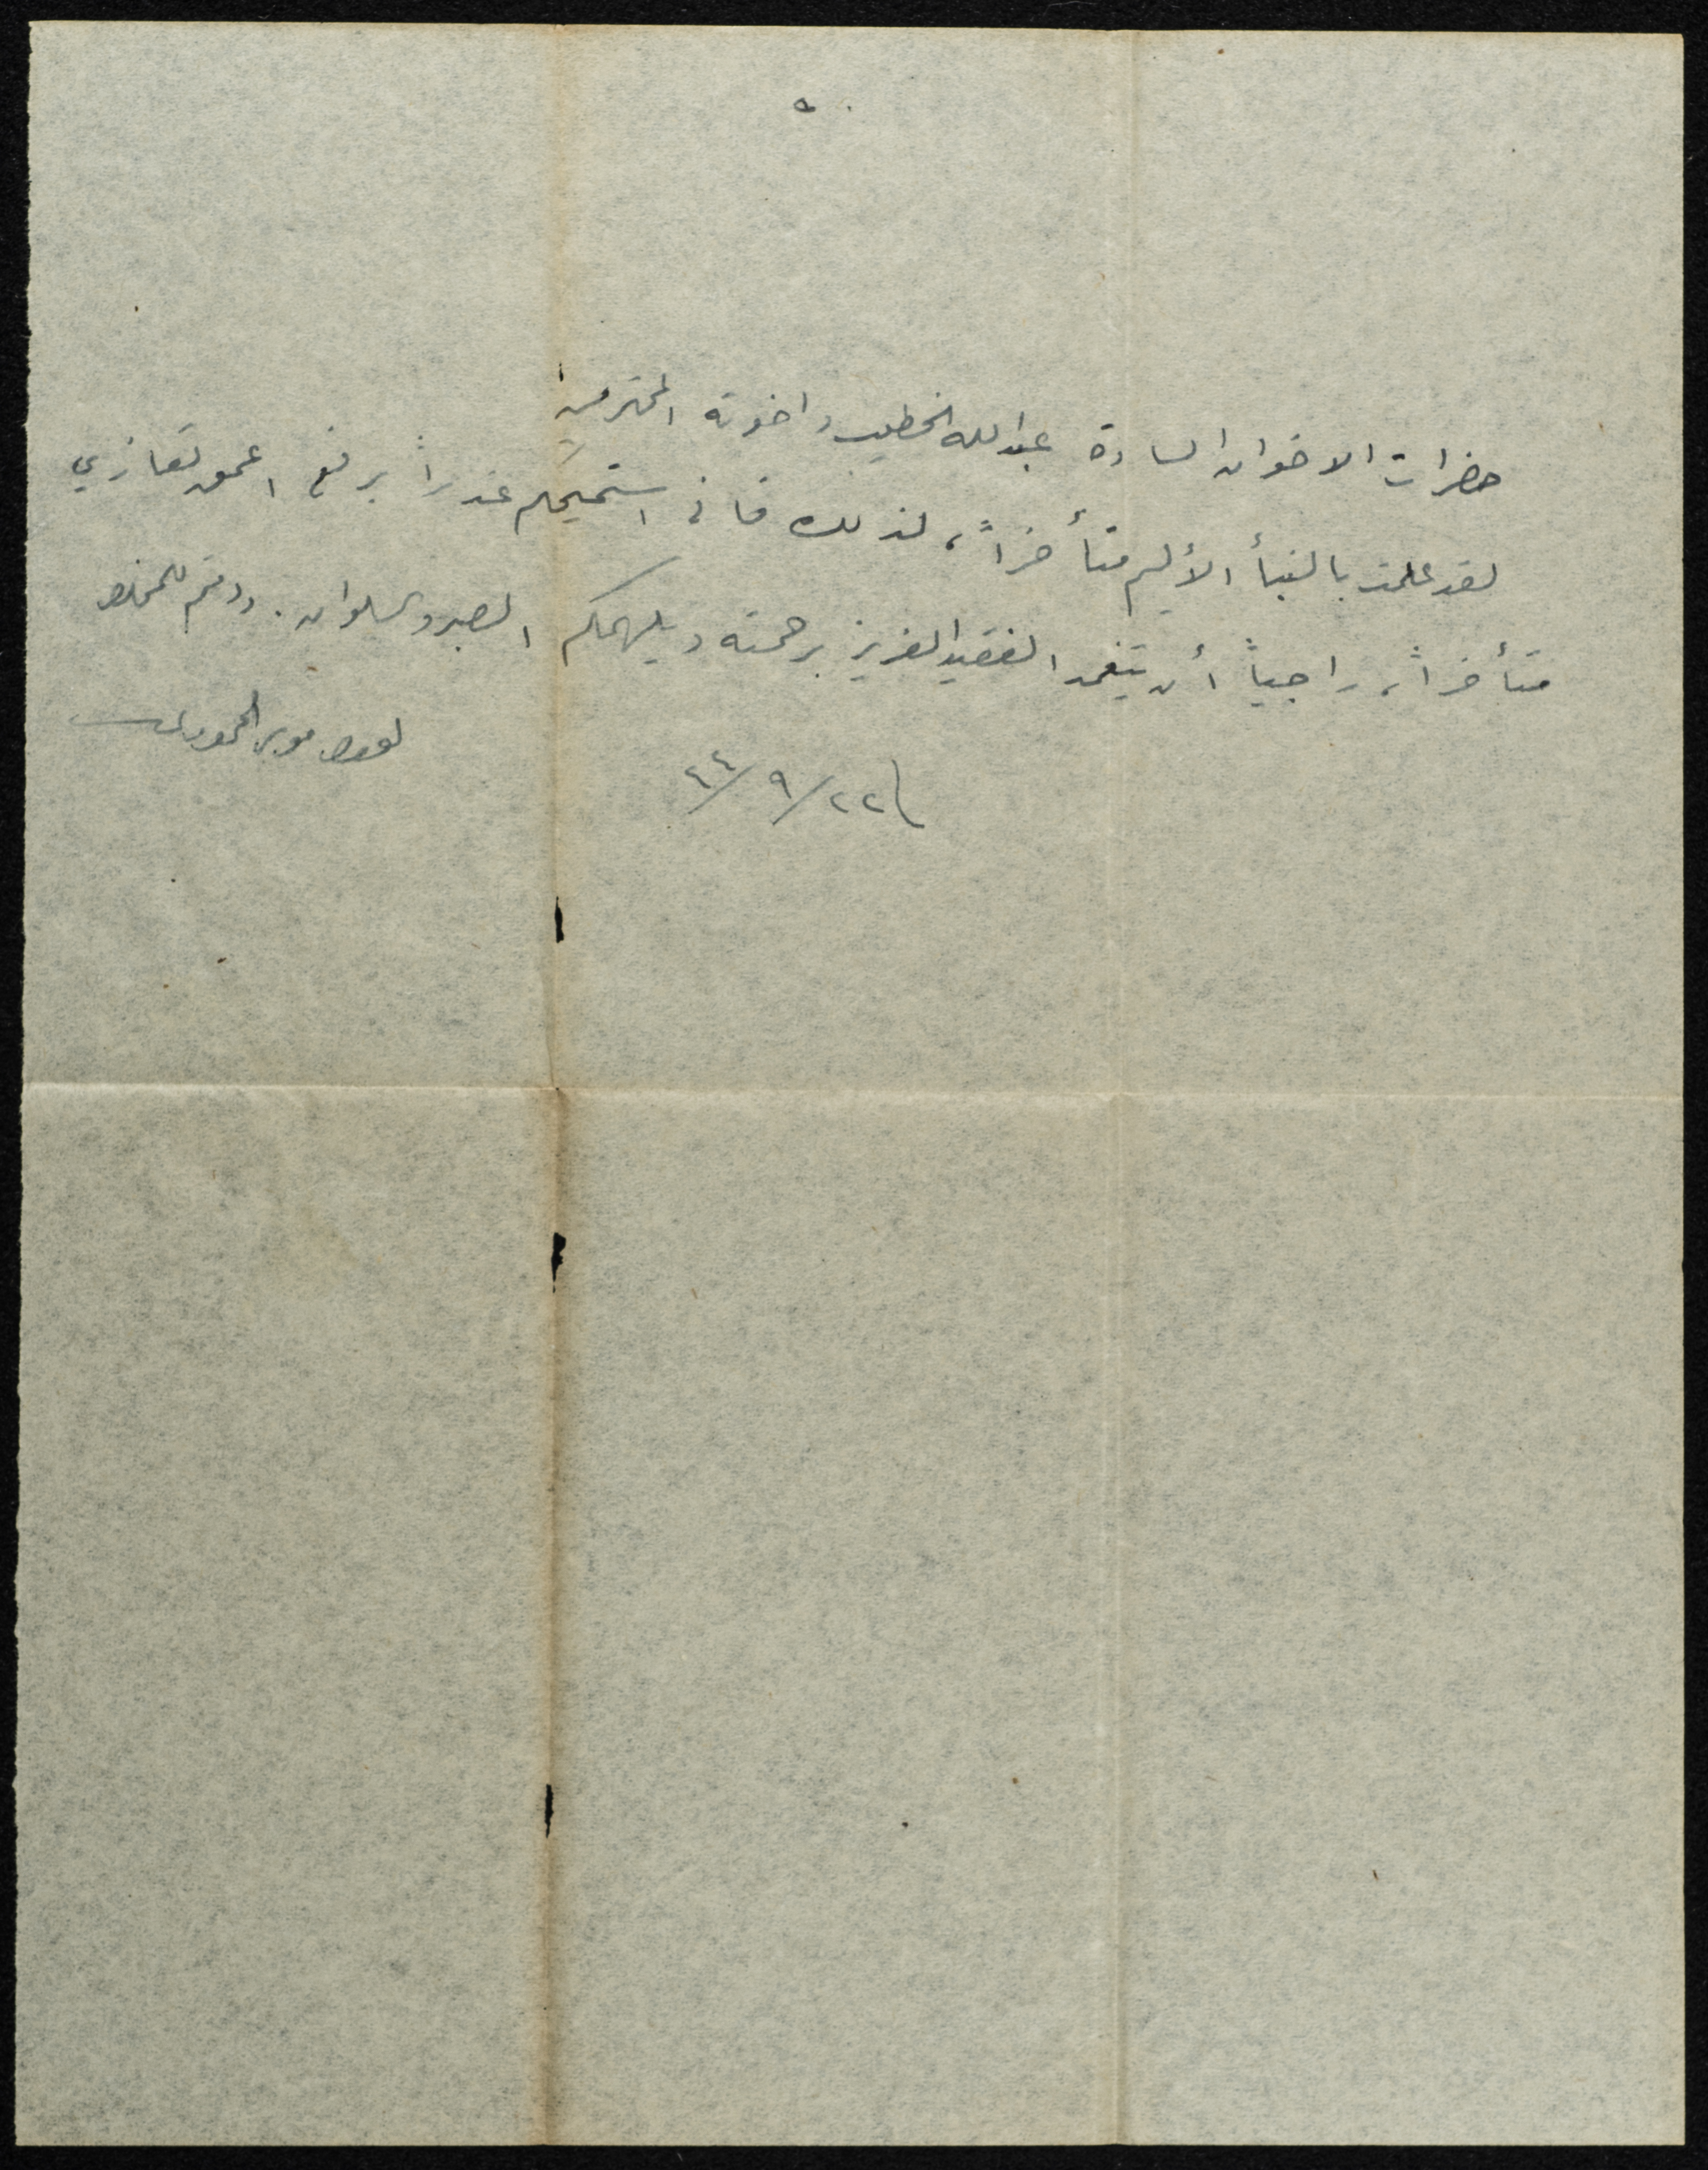 حضرات الاخوان السادة عبدالله الخطيب واخوته المحترمين
لقد علمت بالنبأ الأليم متأخراً، لذلك فاني استميحكم عذراً برفع اعمق تعازيي
متأخراً، راجياً أن يتغمد الفقيد العزيز برحمته ويلهمكم الصبر والسلوان. ودمتم للمخلص
٢٢/٩/٤٤